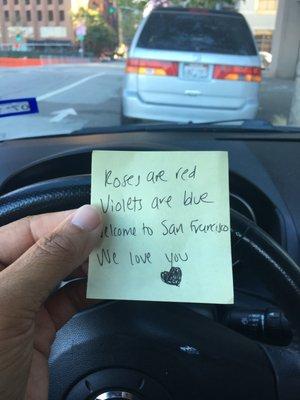 Roses are red
Violets are blue
Welcome to San Francisco
We love you